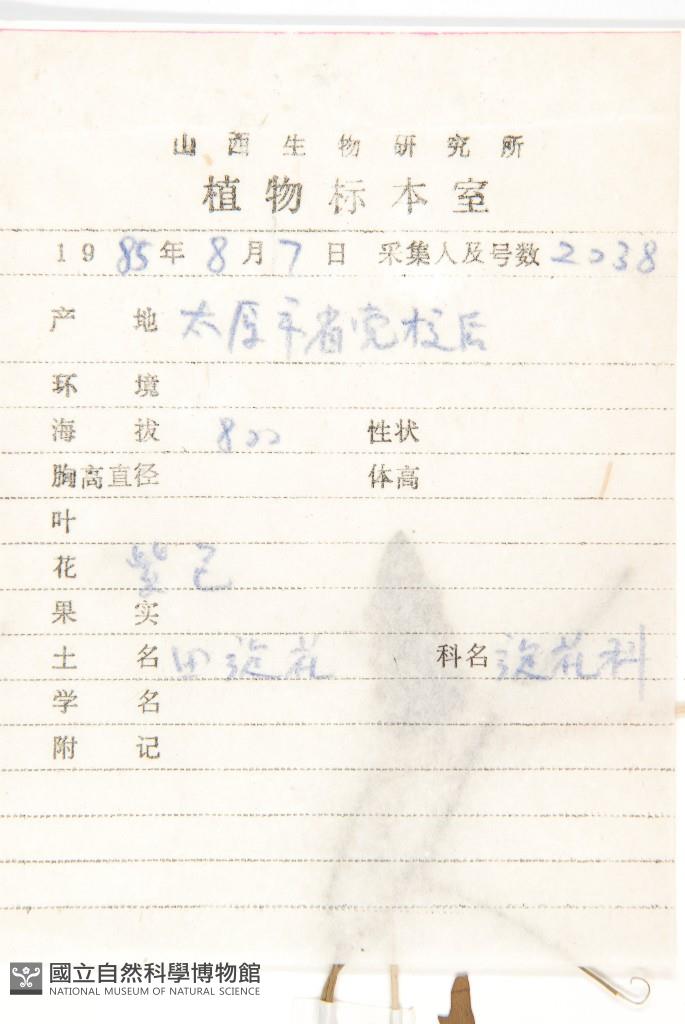 山西生物研究所
植物标本室
1985年8月7日 采集人及号数2038
产地 太原市省党校后
环境
海拔 800 性状
胸高直径 体高
叶
花 紫色
果实
土名 田旋花 科名 旋花科
学名
附记
國立自然科學博物館
NATIONAL MUSEUM OF NATURAL SCIENCE